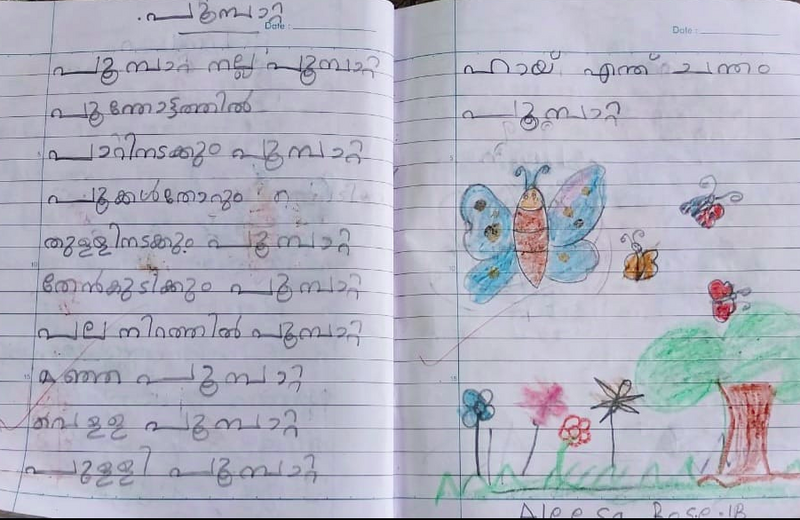 പൂമ്പാറ്റ
Date :
പൂമ്പാറ്റ നല്ല പൂമ്പാറ്റ
പൂന്തോട്ടത്തിൽ
പാറിനടക്കും പൂമ്പാറ്റ
പൂക്കൾതോറും
തുള്ളിനടക്കും പൂമ്പാറ്റ
തേൻകുടിക്കും പൂമ്പാറ്റ
പല നിറത്തിൽ പൂമ്പാറ്റ
മഞ്ഞ പൂമ്പാറ്റ
വെള്ള പൂമ്പാറ്റ
പുള്ളി പൂമ്പാറ്റ
Date :
ഹായ് എന്ത് ചന്തം
പൂമ്പാറ്റ
Aleesa Rose.1B